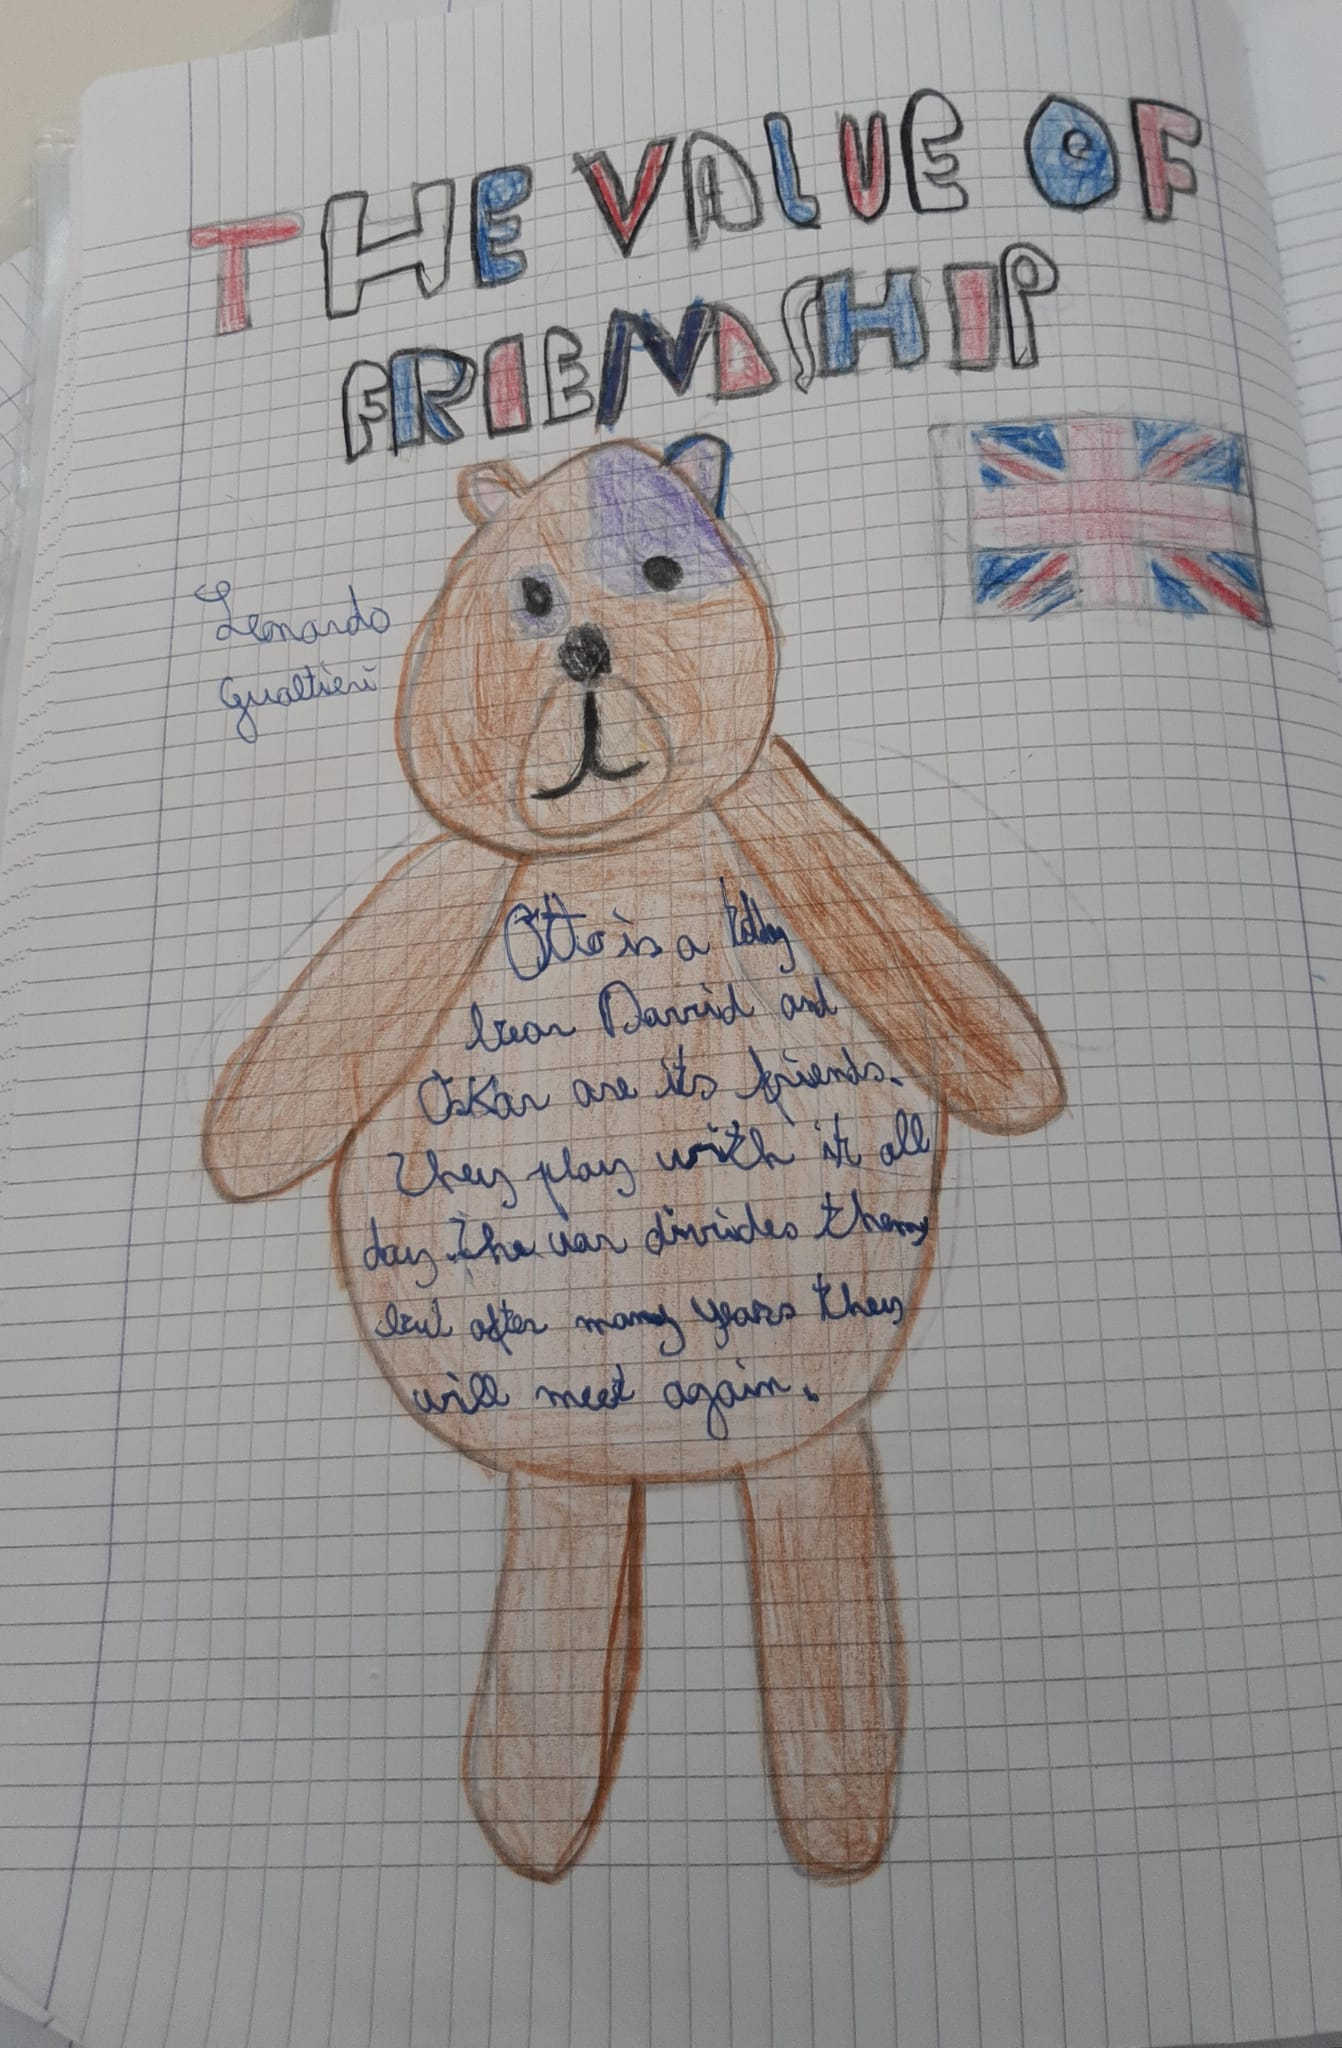 THE VALUE OF
FRIENDSHIP
Leonardo
Gualtieri
Otto is a teddy
bear David and
Oskar are its friends.
They play with it all
day. The war divides them,
but after many years they
will meet again.